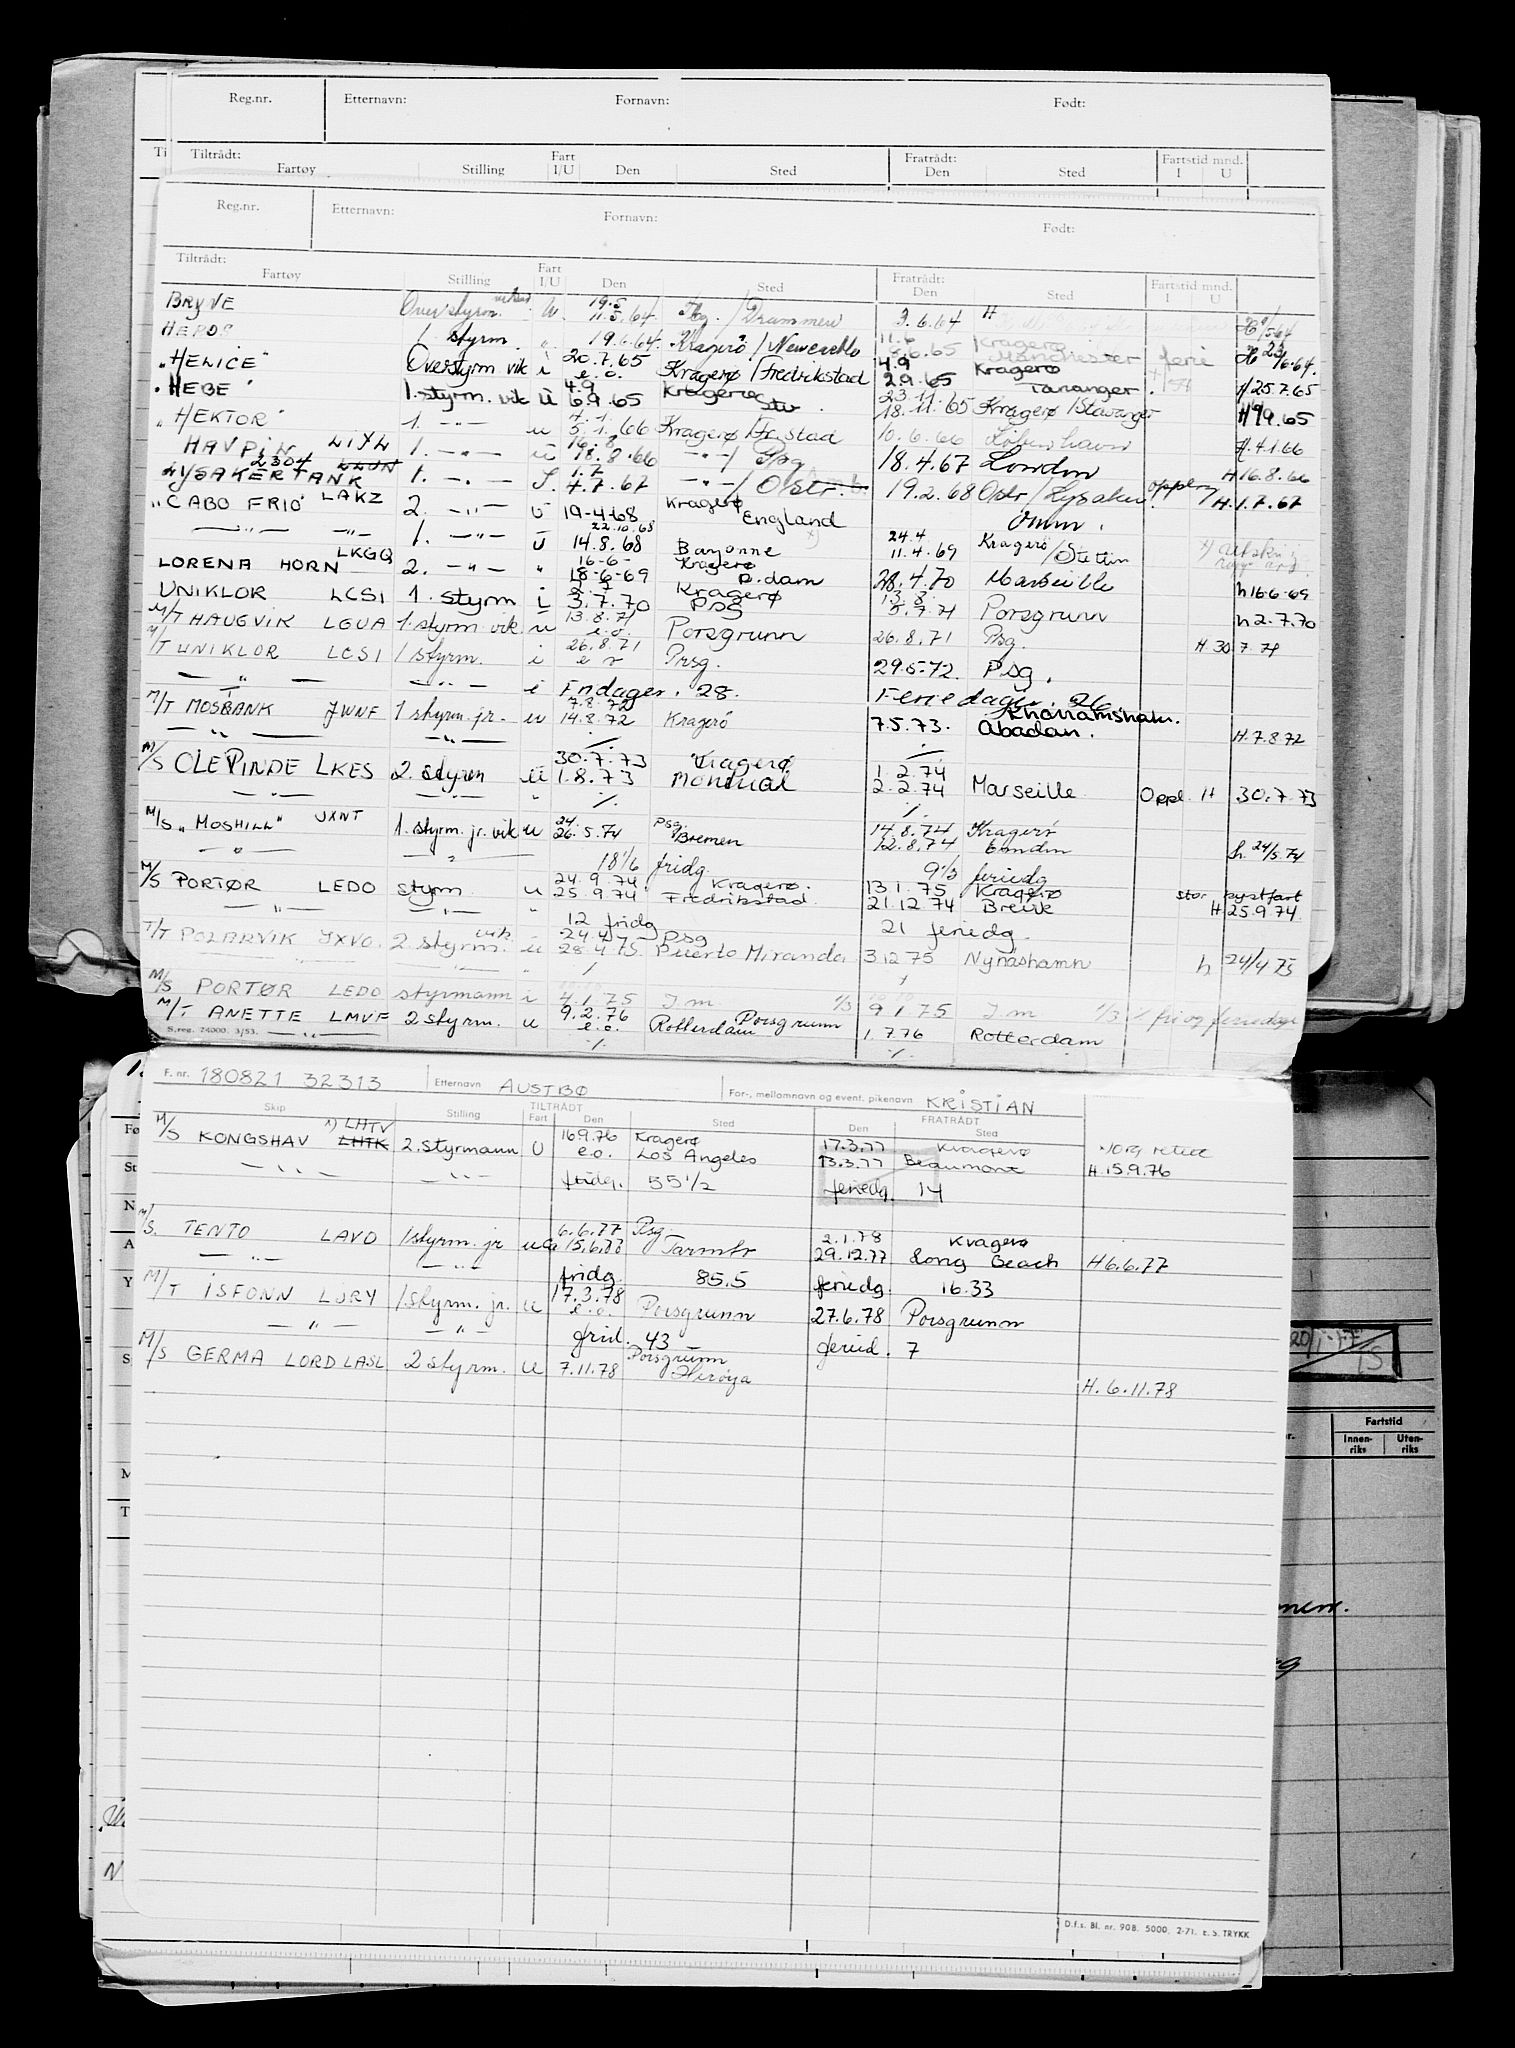 Reg.nr. Etternavn: Fornavn: Født:
Tiltrådt: Fart Fratrådt: Fartstid mnd.
Fartøy Stilling I/U Den Sted Den Sted I U
Reg.nr. Etternavn: Fornavn: Født:
Tiltrådt: Fart Fratrådt: Fartstid mnd.
Fartøy Stilling I/U Den Sted Den Sted I U
BRYVE Overstyrm. 19.5 11.5.64. / Drammen 3.6.64 H
HEROS 1 styrm. " 19.6.64. Kragerø / Newcastle 11.6 6.65 Kragerø Manchester ferie
"HELICE" Overstyrm vik i 20.7.65 e.o. Kragerø / Fredrikstad 4.9 2.9.65 Kragerø Tananger. H 25.7.65
"HEBE" 1. styrm. vik u 4.9 6.9.65 Kragerø 23.11 18.11.65 Kragerø / Stavanger
"HEKTOR" 1. -"- u 5.1.66 Kragerø / Fr.stad 10.6.66 København H 4.1.66
HAVPRIN 1. -"- u 16.8 18.8.66 -"- / Psg 18.4.67 London H 16.8.66
LYSAKER TANK 2304 1. -"- 1.7 4.7.67 -"- / 19.2.68 H. 1.7.67
"CABO FRIO" LAKZ 2. -"- U 19-4-68 Kragerø England
-"- -"- 1. -"- U 22.10.68 14.8.68 Bayonne 24.4 11.4.69 Kragerø / Stettin
LORENA HORN LKGQ 2. -"- " 16-6- 18-6-69 Kragerø R.dam 28.4.70 Marseille h 16.6.69
UNIKLOR LCSI 1. styrm i 3.7.70 Kragerø PSG 13.8. 5.7.71 Porsgrunn h 2.7.70
M/T HAUGVIK LGUA 1. styrm. vik. u 13.8.71 e.o. Porsgrunn 26.8.71 Psg. H 30.7.71
M/T UNIKLOR LCSI 1 styrm. i 26.8.71 Prsg. 29.5.72. Psg.
-"- -"- i Fridager. 28. Feriedager. 26
M/T MOSBANK JWNF 1 styrm. jr. u 7.8.72 14.8.72 Kragerø 7.5.73. Khorramshahr. Abadan. H. 7.8.72
-"- -"- ./. ./.
M/S OLE PINDE LKES 2. styrm u 30.7.73 1.8.73 Kragerø Montreal 1.2.74 2.2.74 Marseille Oppl. H 30.7.73
-"- -"- " ./. ./.
M/S "MOSHILL" JXNT 1. styrm. jr. vik u 24. 26.5.74 Psg. Bremen 14.8.74 12.8.74 Kragerø London h. 24/5.74
-"- -"- 18 1/6 fridg. 9 1/3 feriedg
M/S PORTØR LEDO styrm. u 24.9.74 25.9.74 Kragerø. Fredrikstad. 13.1.75 21.12.74 Kragerø Breivik stor kystfart H 25.9.74
-"- -"- " 12 fridg 21 feriedg.
T/T POLARVIK JXVO. 2. styrm. vik u 24.4.75 28.4.75. Psg Puerto Miranda 3.12.75 Nynäshamn h 24/4 75
M/S PORTØR LEDO styrmann i 4.1.75 J.m. 1/3 9.1.75 J.m 1/3 fri og feriedage
M/T ANETTE LMVF 2 styrm. u 9.2.76 e.o. Porsgrunn Rotterdam 1.7.76 Rotterdam
S.reg. 74000. 3/53. -"- ./. ./.
F. nr. 180821 32313 Etternavn AUSTBØ For-, mellomnavn og event. pikenavn KRISTIAN
TILTRÅDT FRATRÅDT
Skip Stilling Fart Den Sted Den Sted
M/S KONGSHAV x) LHTV LHTK 2. styrmann U 16.9.76 e.o. Kragerø Los Angeles 17.3.77 13.3.77 Kragerø Beaumont H. 15.9.76
-"- -"- fridg. 55 1/2 feriedg. 14
M/S. TENTO LAVD 1 styrm. jr u 6.6.77 15.6.77 Psg. 2.1.78 29.12.77 Kragerø Long Beach H 6.6.77
-"- -"- fridg. 85.5 feriedg. 16.33
M/T ISFONN LJRY 1. styrm. jr. u 17.3.78 e.o. Porsgrunn 27.6.78 Porsgrunn
-"- -"- frid. 43 feried. 7
M/S GERMA LORD LASL 2 styrm. u 7.11.78 Porsgrunn Herøya
H. 6.11.78
20/1-77
Fartstid
Innen-riks Uten-riks
D.f.s. Bl. nr. 908. 5000. 2-71. E. S. TRYKK